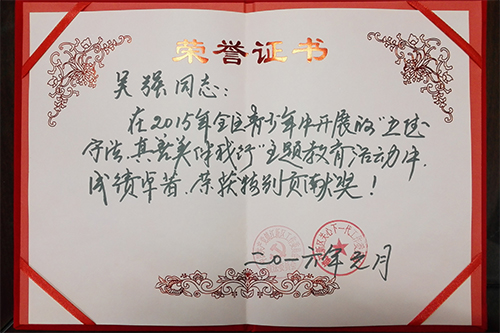 荣誉证书
吴强同志:
在2015年全区青少年中开展的"
守法.真善美伴我行"主题教育活动中.
成绩卓著.荣获特别贡献奖!
区关心下一代工
二〇一六年元月